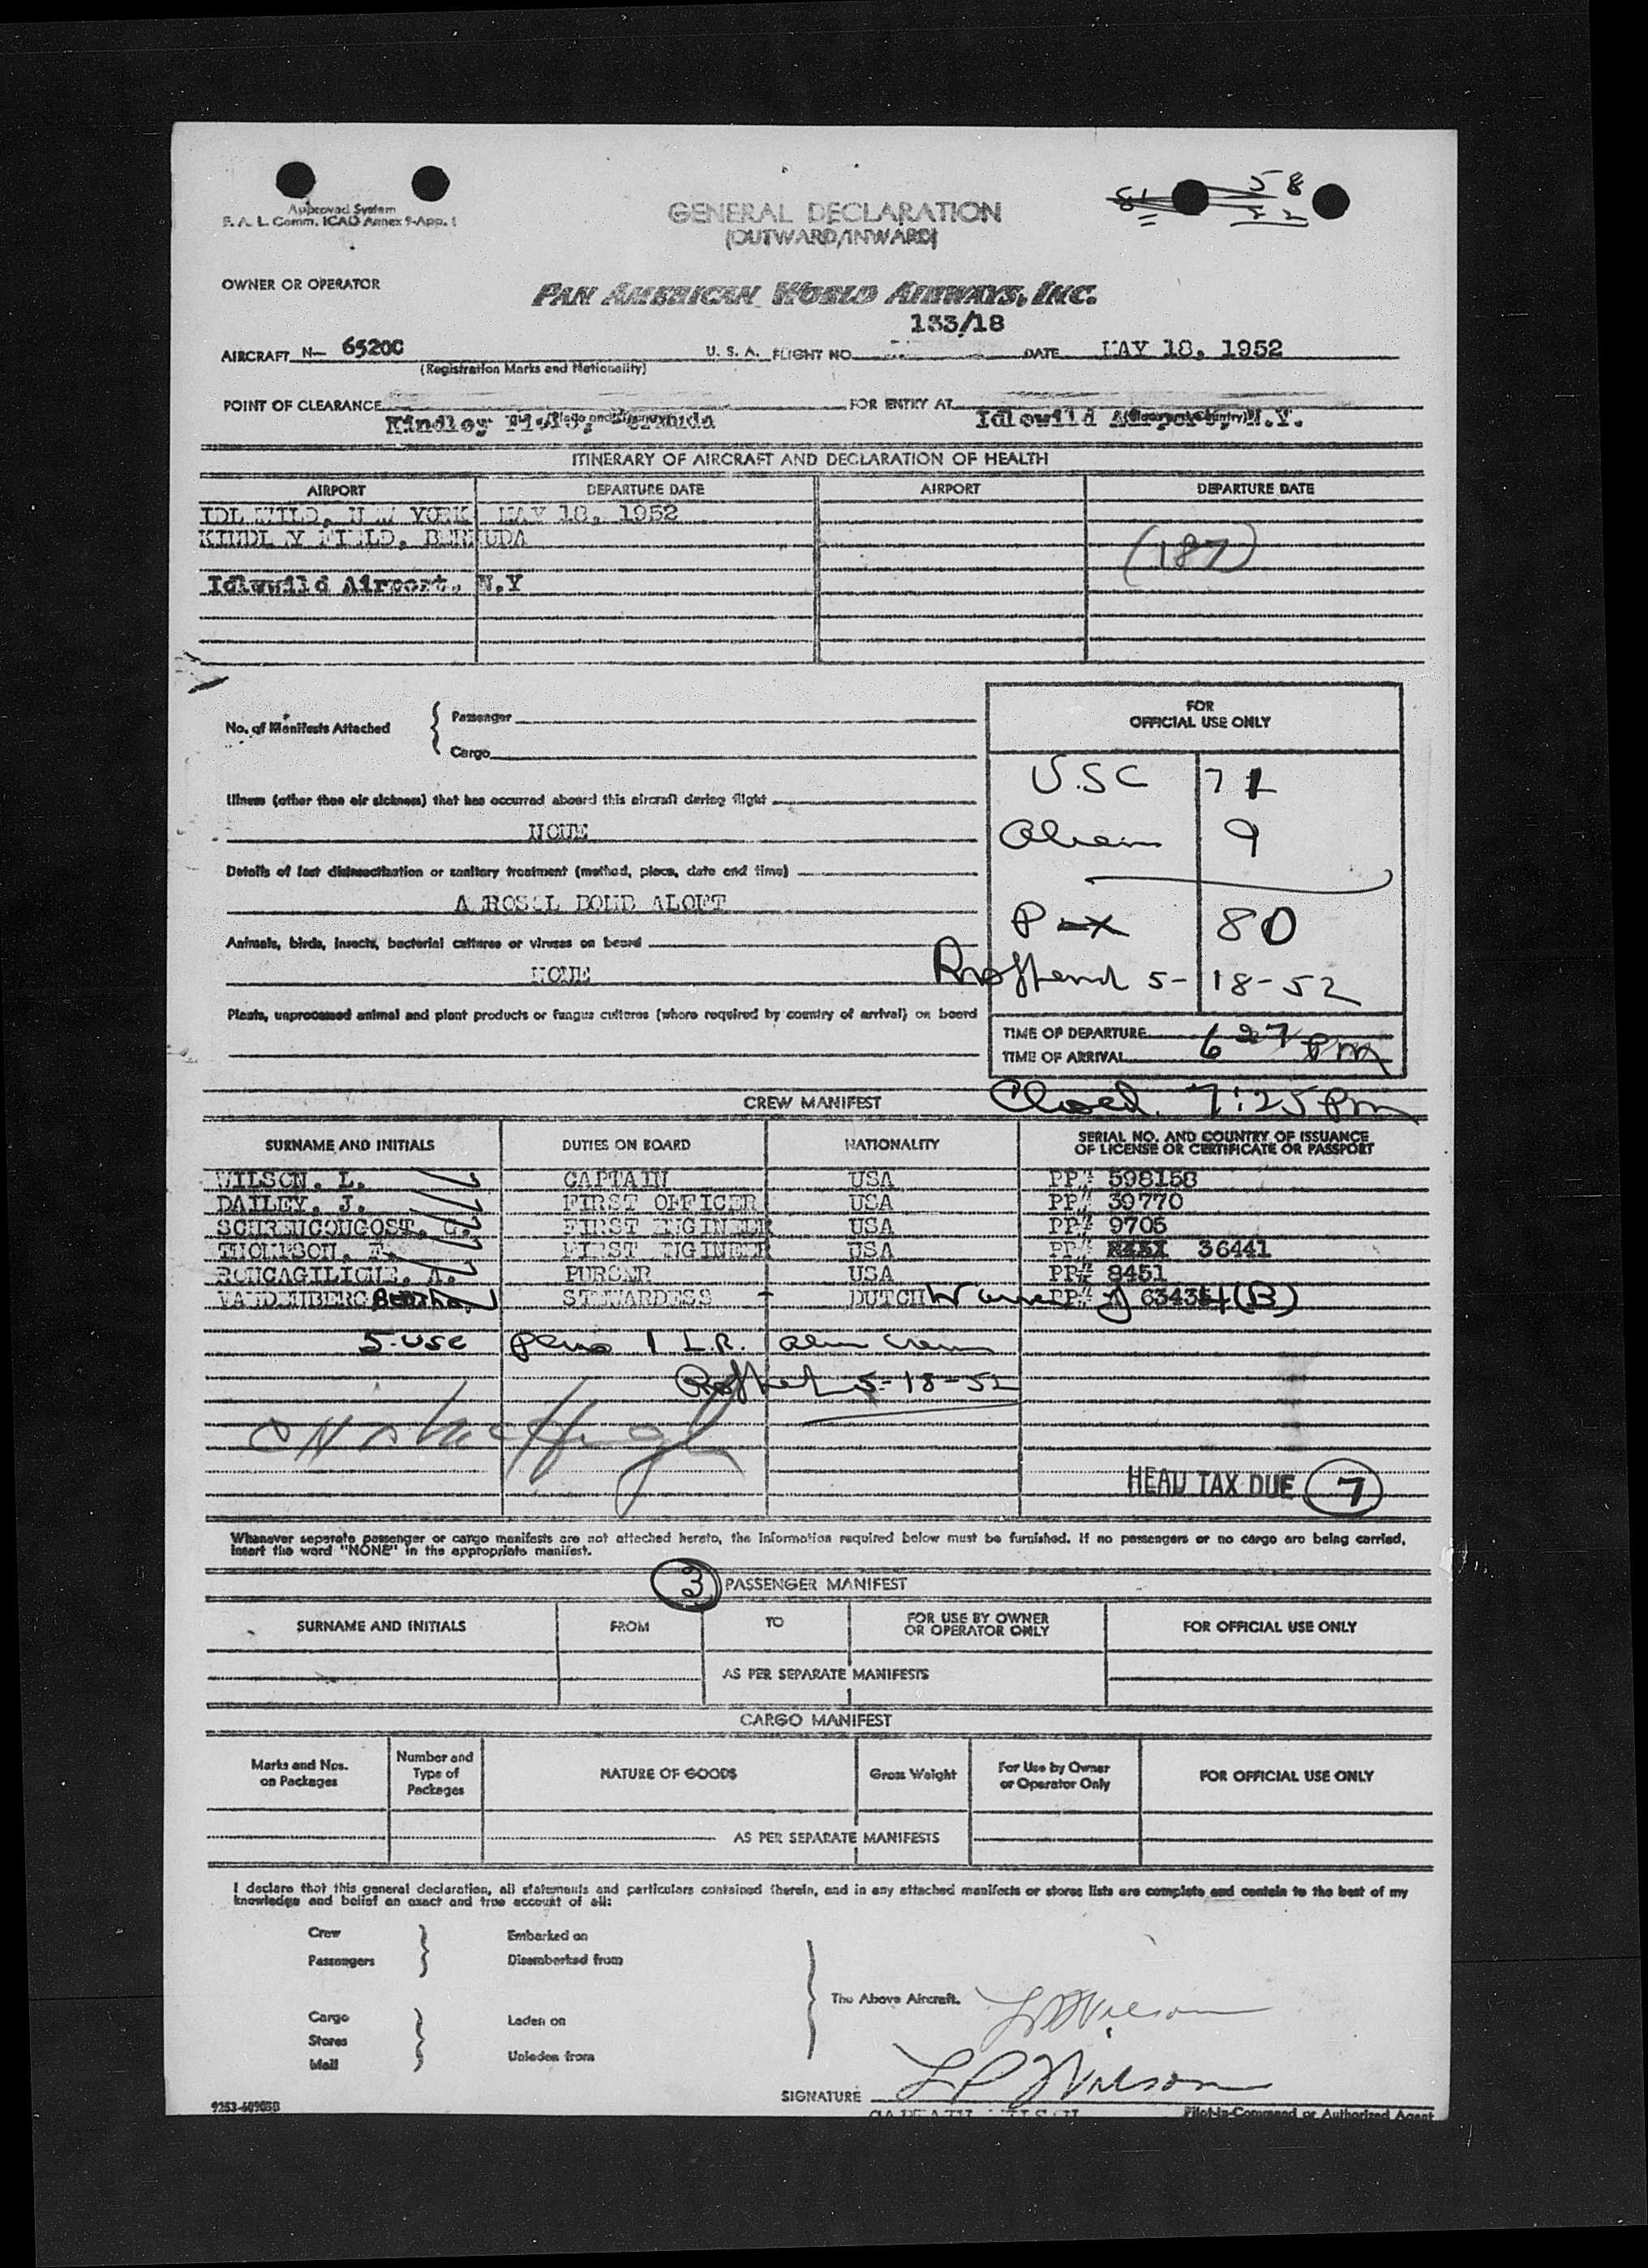 58
Approved System
F. A. L. Comm. ICAO Annex 9-App. 1
GENERAL DECLARATION
(OUTWARD/INWARD)
OWNER OR OPERATOR
PAN AMERICAN WORLD AIRWAYS, INC.
133/18
AIRCRAFT N- 65200 U. S. A. FLIGHT NO. DATE MAY 18, 1952
(Registration Marks and Nationality)
POINT OF CLEARANCE FOR ENTRY AT
Kindley Field, Bermuda Idlewild Airport, N.Y.
ITINERARY OF AIRCRAFT AND DECLARATION OF HEALTH
AIRPORT DEPARTURE DATE AIRPORT DEPARTURE DATE
IDL WILD, N W YORK MAY 18, 1952
KINDL Y FI LD, BERMUDA
(187)
Idlewild Airport, N.Y
No. of Manifests Attached
Passenger
Cargo
FOR
OFFICIAL USE ONLY
U.SC 71
Illness (other than air sickness) that has occurred aboard this aircraft during flight
NONE
Alien 9
Details of last disinsectization or sanitary treatment (method, place, date and time)
A ROSOL BOMB ALOFT
Pax 80
Animals, birds, insects, bacterial cultures or viruses on board
NONE
5-18-52
Plants, unprocessed animal and plant products or fungus cultures (where required by country of arrival) on board
TIME OF DEPARTURE
TIME OF ARRIVAL 6 27 PM
Closed. 7:25 PM
CREW MANIFEST
SURNAME AND INITIALS DUTIES ON BOARD NATIONALITY SERIAL NO. AND COUNTRY OF ISSUANCE
OF LICENSE OR CERTIFICATE OR PASSPORT
WILSON, L. CAPTAIN USA PP# 598158
DAILEY, J. FIRST OFFICER USA PP# 39770
FIRST ENGINEER USA PP# 9705
THOMPSON, F. FIRST ENGINEER USA PP# 36441
RONCAGILIONE, A. PURSNR USA PP# 8451
VANDENBERG Bertha STEWARDESS - DUTCH PP#
5-USC plus 1 L.R. alien
5-18-52
HEAD TAX DUE 7
Whenever separate passenger or cargo manifests are not attached hereto, the information required below must be furnished. If no passengers or no cargo are being carried,
insert the word "NONE" in the appropriate manifest.
3 PASSENGER MANIFEST
SURNAME AND INITIALS FROM TO FOR USE BY OWNER
OR OPERATOR ONLY FOR OFFICIAL USE ONLY
AS PER SEPARATE MANIFESTS
CARGO MANIFEST
Marks and Nos.
on Packages Number and
Type of
Packages NATURE OF GOODS Gross Weight For Use by Owner
or Operator Only FOR OFFICIAL USE ONLY
AS PER SEPARATE MANIFESTS
I declare that this general declaration, all statements and particulars contained therein, and in any attached manifests or stores lists are complete and contain to the best of my
knowledge and belief an exact and true account of all:
Crew
Passengers
Embarked on
Disembarked from
The Above Aircraft.
LP Wilson
Cargo
Stores
Mail
Laden on
Unladen from
SIGNATURE LP Wilson
CAPTAIN WILSON Pilot-in-Command or Authorized Agent